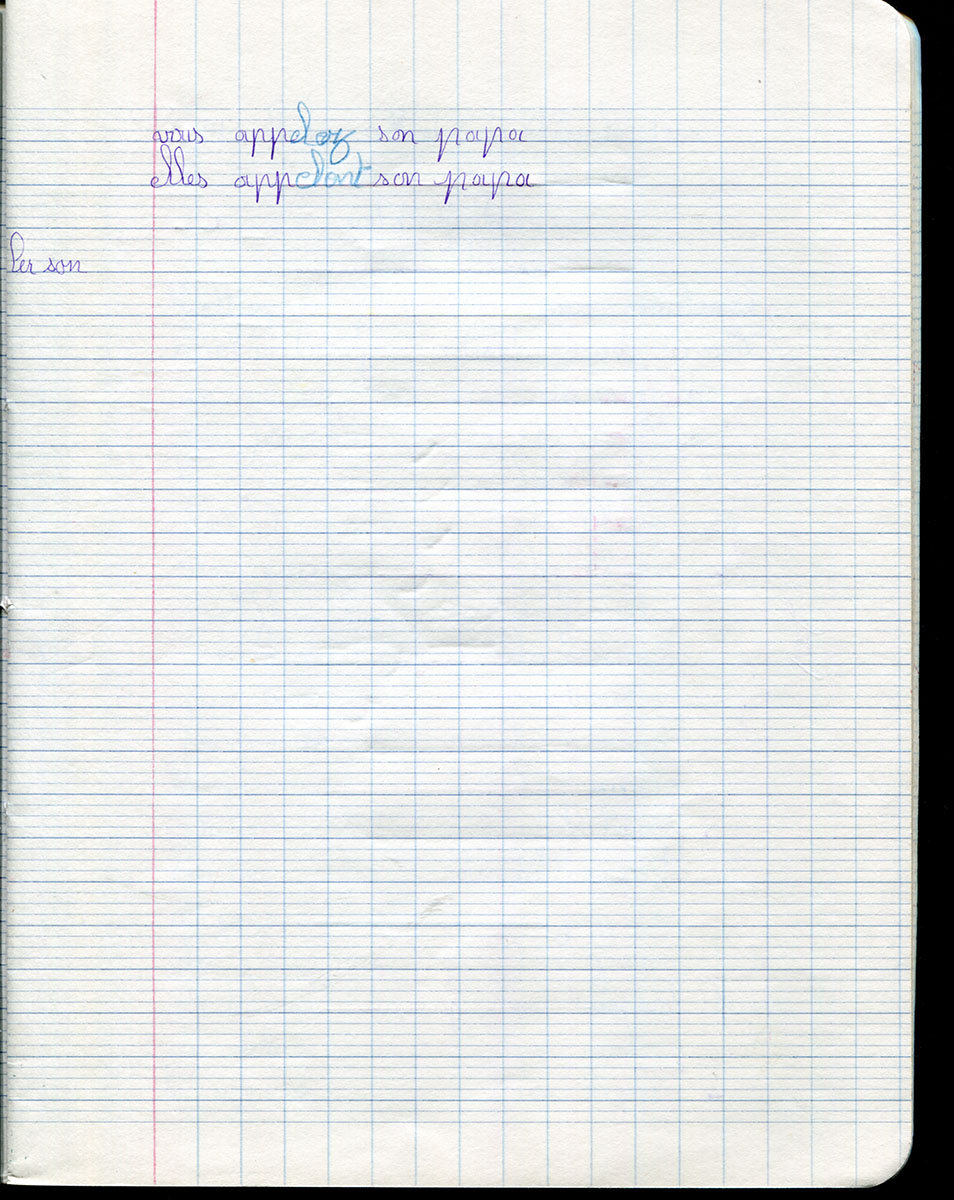 vous appelez son papa
elles appelont son papa
Per son